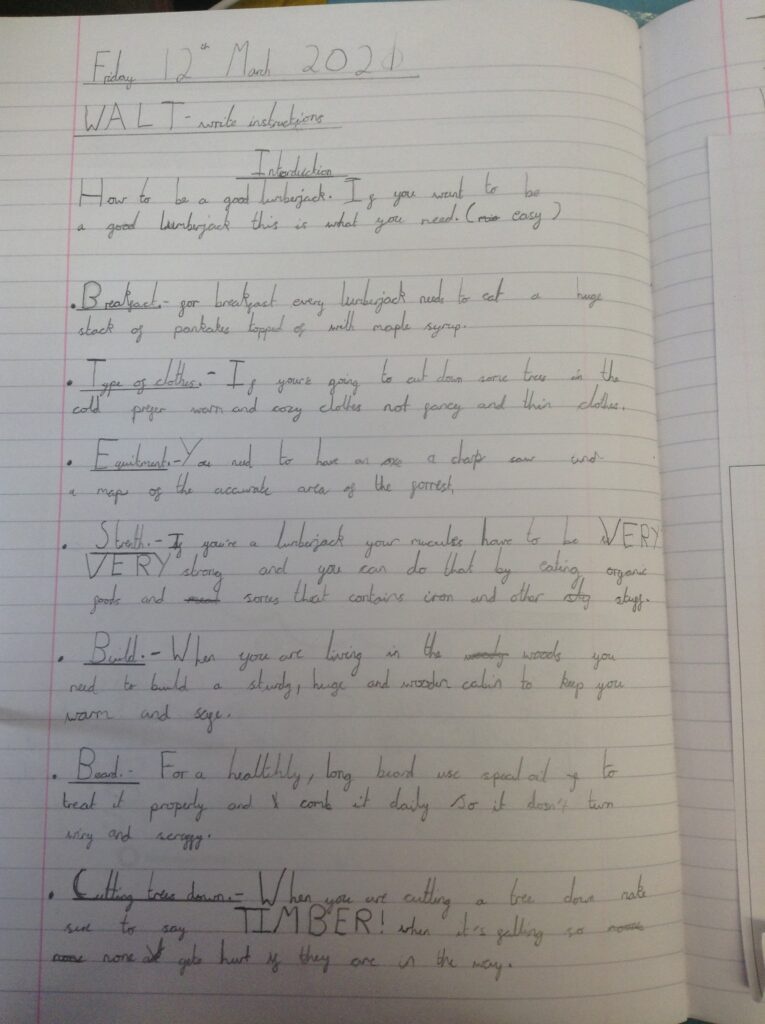 Friday 12th March 2021
WALT - write instructions
Interduction
How to be a good lumberjack. If you want to be
a good lumberjack this is what you need. (easy)
• Breakfast. - for breakfast every lumberjack needs to eat a huge
stack of pankakes topped of with maple syrup.
• Type of clothes. - If your'e going to cut down some trees in the
cold prefer warm and cozy clothes not fancy and thin clothes.
• Equitment. - You need to have an axe a sharp saw and
a map of the accurate area of the forrest.
• Strenth. - If you're a lumberjack your muscules have to be VERY
VERY strong and you can do that by eating organic
foods and sorces that contains iron and other stuff.
• Build. - When you are living in the woods you
need to build a sturdy, huge and wooden cabin to keep you
warm and safe.
• Beard. - For a healthly, long beard use special oil to
treat it properly and comb it daily so it dosn't turn
wiry and scruffy.
• Cutting trees down. - When you are cutting a tree down make
sure to say TIMBER! when it's falling so
none gets hurt if they are in the way.